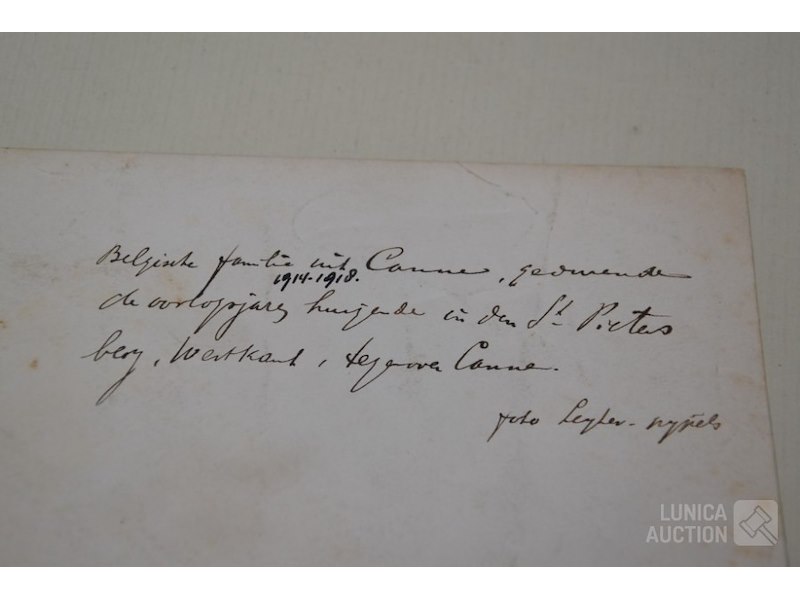 Belgische familie uit Canne, gedurende
1914-1918.
de oorlogsjaren huizende in den St Pieters
berg, Westkant, tegenover Canne.
foto Leyter-nypels
LUNICA
AUCTION